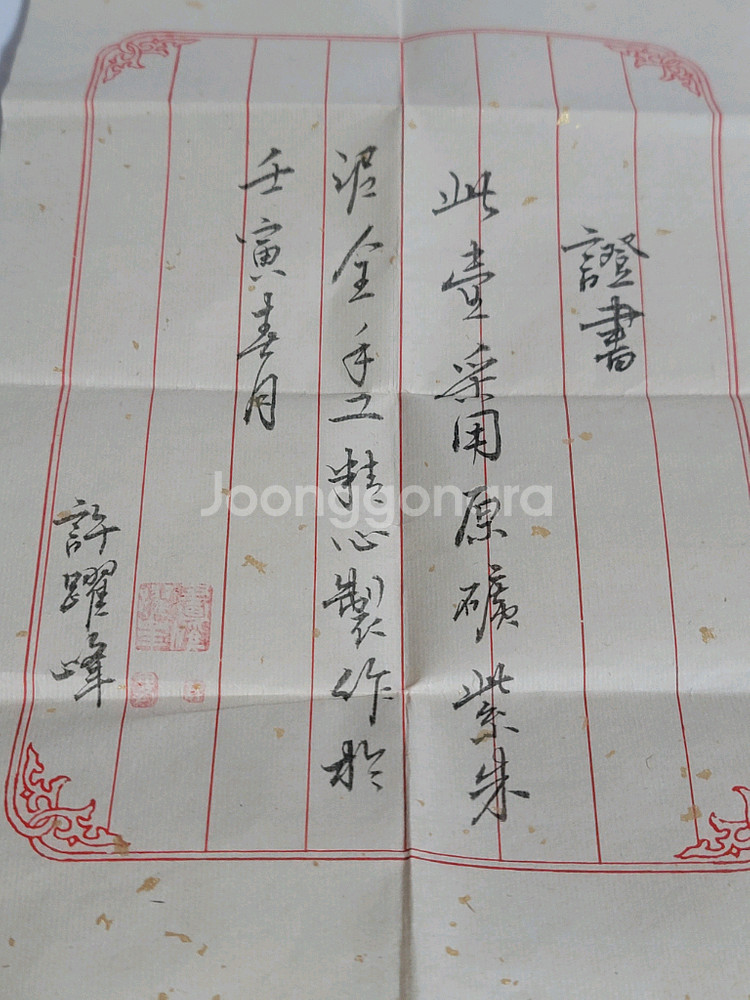 證書
此壹采用原礦紫朱
泥全手工精心製作於
壬寅春月
許躍峰
Joonggonara